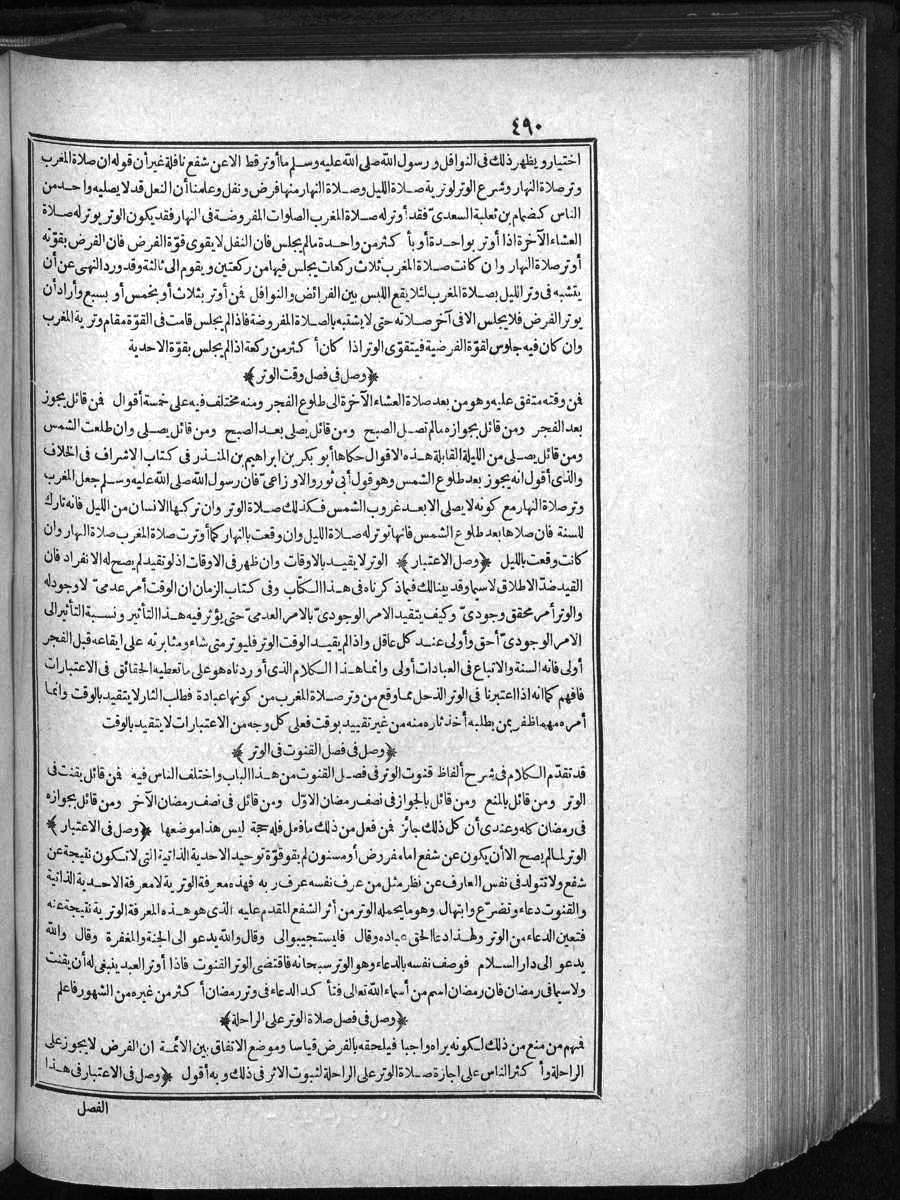 ٤٩٠
اختيار ويظهر ذلك فى النوافل ورسول الله صلى الله عليه وسلم ما أوتر قط الا عن شفع نافلة غير أن قوله ان صلاة المغرب
وتر صلاة النهار وشرع الوتر لوترية صلاة الليل وصلاة النهار منها فرض ونفل وعلمنا أن النفل قد لا يصليه واحد من
الناس كضمام بن ثعلبة السعدىّ فقد أوتر له صلاة المغرب الصلوات المفروضة فى النهار فقد يكون الوتر يوتر له صلاة
العشاء الآخرة اذا أوتر بواحدة أو بأكثر من واحدة مالم يجلس فان النفل لا يقوى قوّة الفرض فان الفرض بقوّته
أوتر صلاة النهار وان كانت صلاة المغرب ثلاث ركعات يجلس فيها من ركعتين ويقوم الى ثالثة وقد ورد النهى عن أن
يتشبه فى وتر الليل بصلاة المغرب لئلا يقع اللبس بين الفرائض والنوافل فمن أوتر بثلاث أو بخمس أو بسبع وأراد أن
يوتر الفرض فلا يجلس الا فى آخر صلاته حتى لا يشتبه بالصلاة المفروضة فاذا لم يجلس قامت فى القوّة مقام وترية المغرب
وان كان فيه جلوس لقوّة الفرضية فيتقوى الوتر اذا كان أكثر من ركعة اذا لم يجلس بقوّة الاحدية
﴿وصل فى فصل وقت الوتر﴾
فمن وقته متفق عليه وهو من بعد صلاة العشاء الآخرة الى طلوع الفجر ومنه مختلف فيه على خمسة أقوال فمن قائل يجوز
بعد الفجر ومن قائل بجوازه مالم تصل الصبح ومن قائل يصلى بعد الصبح ومن قائل يصلى وان طلعت الشمس
ومن قائل يصلى من الليلة القابلة هذه الاقوال حكاها أبو بكر بن ابراهيم بن المنذر فى كتاب الاشراف فى الخلاف
والذى أقول انه يجوز بعد طلوع الشمس وهو قول أبى ثور والاوزاعىّ فان رسول الله صلى الله عليه وسلم جعل المغرب
وتر صلاة النهار مع كونه لا يصلى الا بعد غروب الشمس فكذلك صلاة الوتر وان تركها الانسان من الليل فانه تارك
للسنة فان صلاها بعد طلوع الشمس فانها توتر له صلاة الليل وان وقعت بالنهار كما أوترت صلاة المغرب صلاة النهار وان
كانت وقعت بالليل ﴿وصل الاعتبار﴾ الوتر لا يقيد بالاوقات وان ظهر فى الاوقات اذ لو تقيد لم يصح له الانفراد فان
القيد ضدّ الاطلاق لا سيما وقد بينا لك فيما ذكرناه فى هذا الكتّاب وفى كتاب الزمان ان الوقت أمر عدمىّ لا وجود له
والوتر أمر محقق وجودىّ وكيف يتقيد الامر الوجودىّ بالامر العدمىّ حتى يؤثر فيه هذا التأثير ونسبة التأثير الى
الامر الوجودىّ أحق وأولى عند كل عاقل واذا لم يقيد الوقت الوتر فليوتر متى شاء ومثابرته على ايقاعه قبل الفجر
أولى فانه السنة والاتباع فى العبادات أولى وانما هذا الكلام الذى أوردناه هو على ما تعطيه الحقائق فى الاعتبارات
فافهم كما انه اذا اعتبرنا فى الوتر الذحل مما وقع من وتر صلاة المغرب من كونها عبادة فطلب الثار لا يتقيد بالوقت وانما
أمره مهما ظفر بمن يطلبه أخذ ثاره منه من غير تقييد بوقت فعلى كل وجه من الاعتبارات لا يتقيد بالوقت
﴿وصل فى فصل القنوت فى الوتر﴾
قد تقدّم الكلام فى شرح ألفاظ قنوت الوتر فى فصل القنوت من هذا الباب واختلف الناس فيه فمن قائل يقنت فى
الوتر ومن قائل بالمنع ومن قائل بالجواز فى نصف رمضان الاوّل ومن قائل فى نصف رمضان الآخر ومن قائل بجوازه
فى رمضان كله وعندى أن كل ذلك جائز فمن فعل من ذلك ما فعل فله حجة ليس هذا موضعها ﴿وصل فى الاعتبار﴾
الوتر لما لم يصح الا أن يكون عن شفع اما مفروض أو مسنون لم يقو قوّة توحيد الاحدية الذاتية التى لا تكون نتيجة عن
شفع ولا تتولد فى نفس العارف عن نظر مثل من عرف نفسه عرف ربه فهذه معرفة الوترية لا معرفة الاحدية الذاتية
والقنوت دعاء وتضرّع وابتهال وهو ما يحمله الوتر من أثر الشفع المقدم عليه الذى هو هذه المعرفة الوترية نتيجة عنه
فتعين الدعاء من الوتر ولهذا دعا الحق عباده وقال فليستجيبوا لى وقال والله يدعو الى الجنة والمغفرة وقال والله
يدعو الى دار السلام فوصف نفسه بالدعاء وهو الوتر سبحانه فاقتضى الوتر القنوت فاذا أوتر العبد ينبغى له أن يقنت
ولا سيما فى رمضان فان رمضان اسم من أسماء الله تعالى فتأكد الدعاء فى وتر رمضان أكثر من غيره من الشهور فاعلم
﴿وصل فى فصل صلاة الوتر على الراحلة﴾
فمنهم من منع من ذلك لكونه يراه واجبا فيلحقه بالفرض قياسا وموضع الاتفاق بين الائمة ان الفرض لا يجوز على
الراحلة وأكثر الناس على اجازة صلاة الوتر على الراحلة لثبوت الاثر فى ذلك وبه أقول ﴿وصل فى الاعتبار فى هذا
الفصل